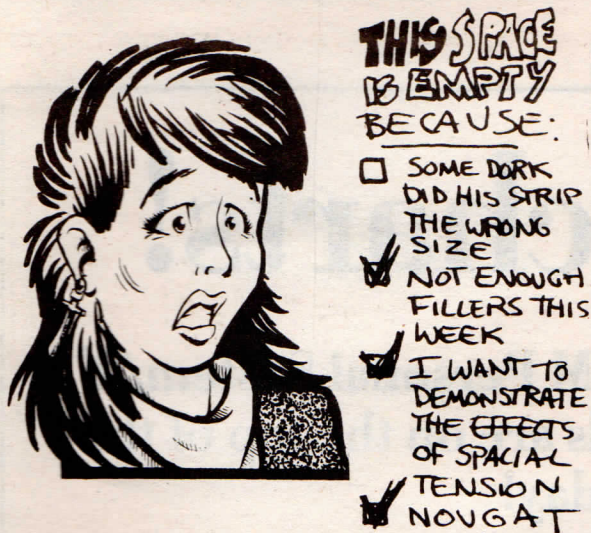 THIS SPACE
IS EMPTY
BECAUSE:
SOME DORK
DID HIS STRIP
THE WRONG
SIZE
NOT ENOUGH
FILLERS THIS
WEEK
I WANT TO
DEMONSTRATE
THE EFFECTS
OF SPACIAL
TENSION
NOUGAT